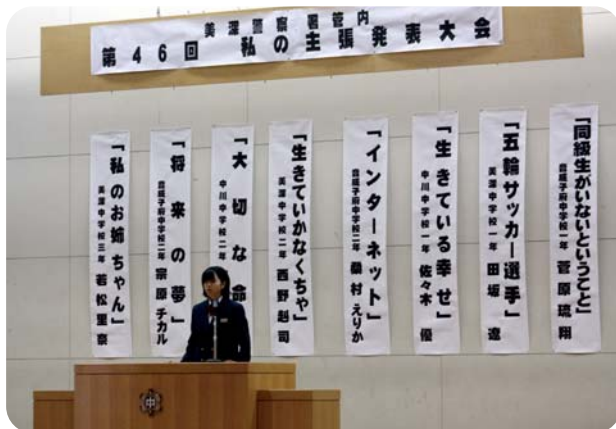 美深警察署管内
第46回 私の主張発表大会
「同級生がいないということ」
音威子府中学校一年 菅原琉翔
「五輪サッカー選手」
美深中学校一年 田坂 遼
「生きている幸せ」
中川中学校一年 佐々木 優
「インターネット」
音威子府中学校二年 桑村えりか
「生きていかなくちゃ」
美深中学校二年 西野赳司
「大切な命
中川中学校二年
「将来の夢」
音威子府中学校二年 宗原チカル
「私のお姉ちゃん」
美深中学校三年 若松里奈
中